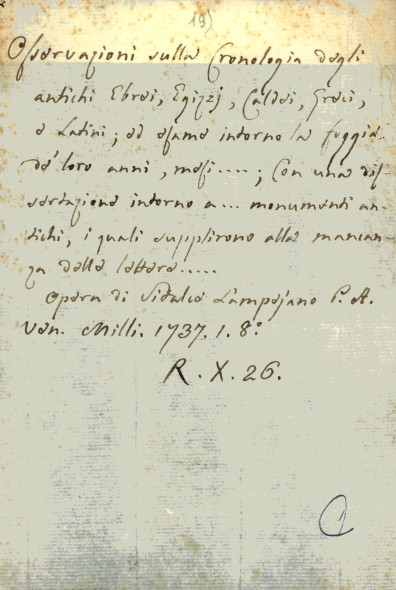 19)
Osservazioni sulla Cronologia degli
antichi Ebrei, Egizzj, Caldei, Greci,
e Latini; ed esame intorno la
de' loro anni, mesi....; Con una dis-
sertazione intorno a... monumenti an-
tichi, i quali supplirono alla mancan-
za delle lettere.....
Opera di Lampejano P. A.
Ven. Milli. 1737. 1. 8º
R. X. 26.